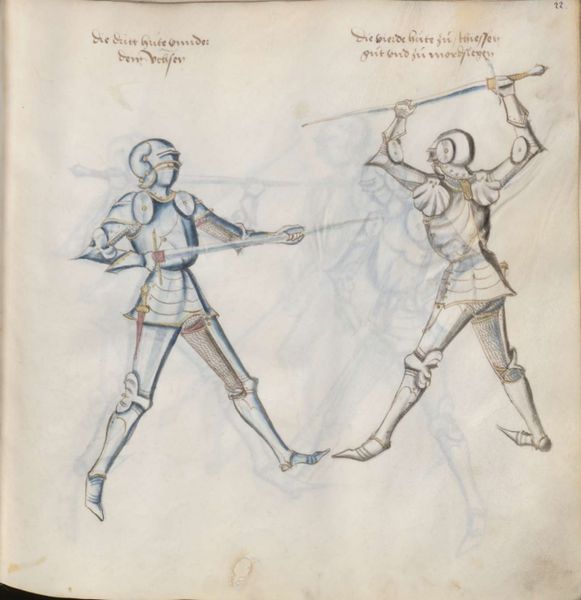 22
die dritt hute vnnder
dem Vchsen
die vierde hute zu stiessen
gut vnd zu mordslegen